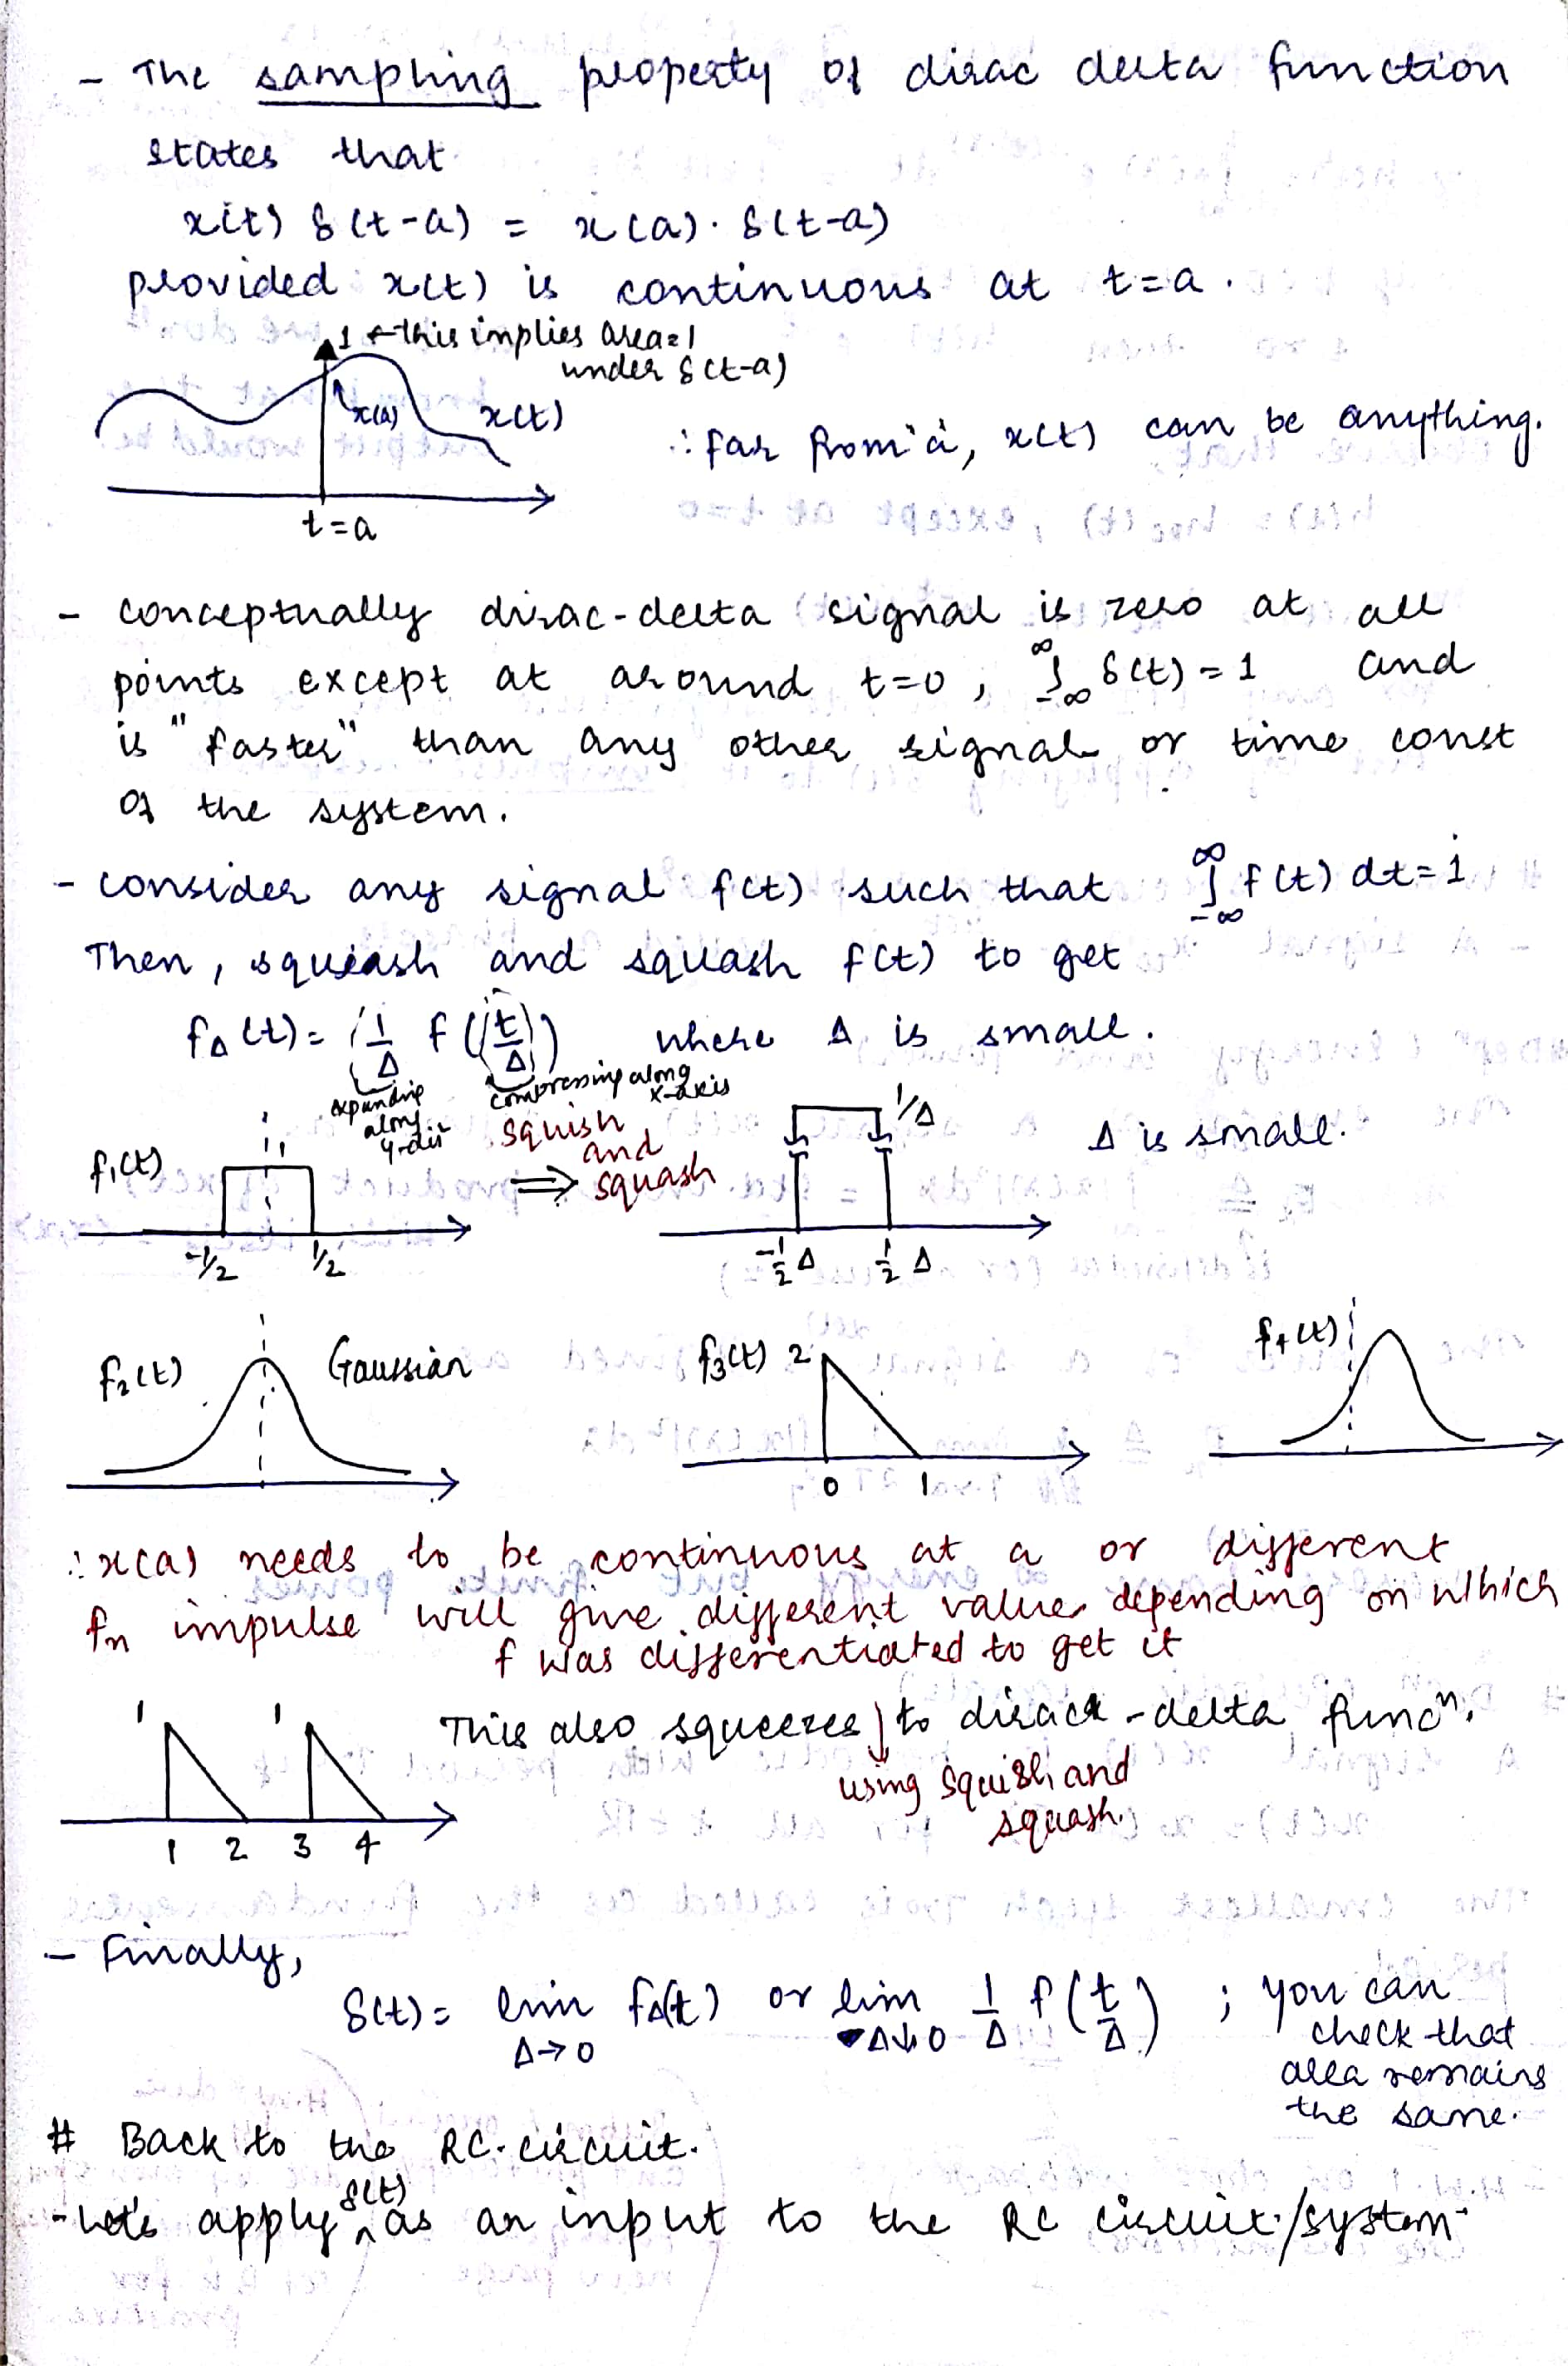 - The sampling property of dirac delta function
states that
x(t) δ(t-a) = x(a) · δ(t-a)
provided x(t) is continuous at t=a.
1 ← this implies area=1
under δ(t-a)
x(a) x(t)
∴ far from 'a', x(t) can be anything.
t=a
- conceptually dirac-delta signal is zero at all
points except at around t=0, ∫_{-∞}^{∞} δ(t) = 1 and
is "faster" than any other signal or time const
of the system.
- consider any signal f(t) such that ∫_{-∞}^{∞} f(t) dt = 1
Then, squash and squash f(t) to get
f_Δ(t) = (1/Δ) f((t/Δ)) where Δ is small.
expanding along y-dir
compressing along x-axis
f₁(t) 1
squish
and
⇒ squash
1/Δ
Δ is small.
-1/2 1/2
-1/2 Δ 1/2 Δ
f₂(t) Gaussian
f₃(t) 2
f₄(t)
0 1
∴ x(a) needs to be continuous at a or different
fn impulse will give different values depending on which
f was differentiated to get it
1 1 This also squeezes to dirack-delta funcⁿ.
using squish and
squash.
1 2 3 4
- Finally,
δ(t) = lim_{Δ→0} f_Δ(t) or lim_{Δ↓0} 1/Δ f(t/Δ) ; you can
check that
area remains
the same.
# Back to the RC-circuit.
- Let's apply δ(t) as an input to the RC circuit/system-